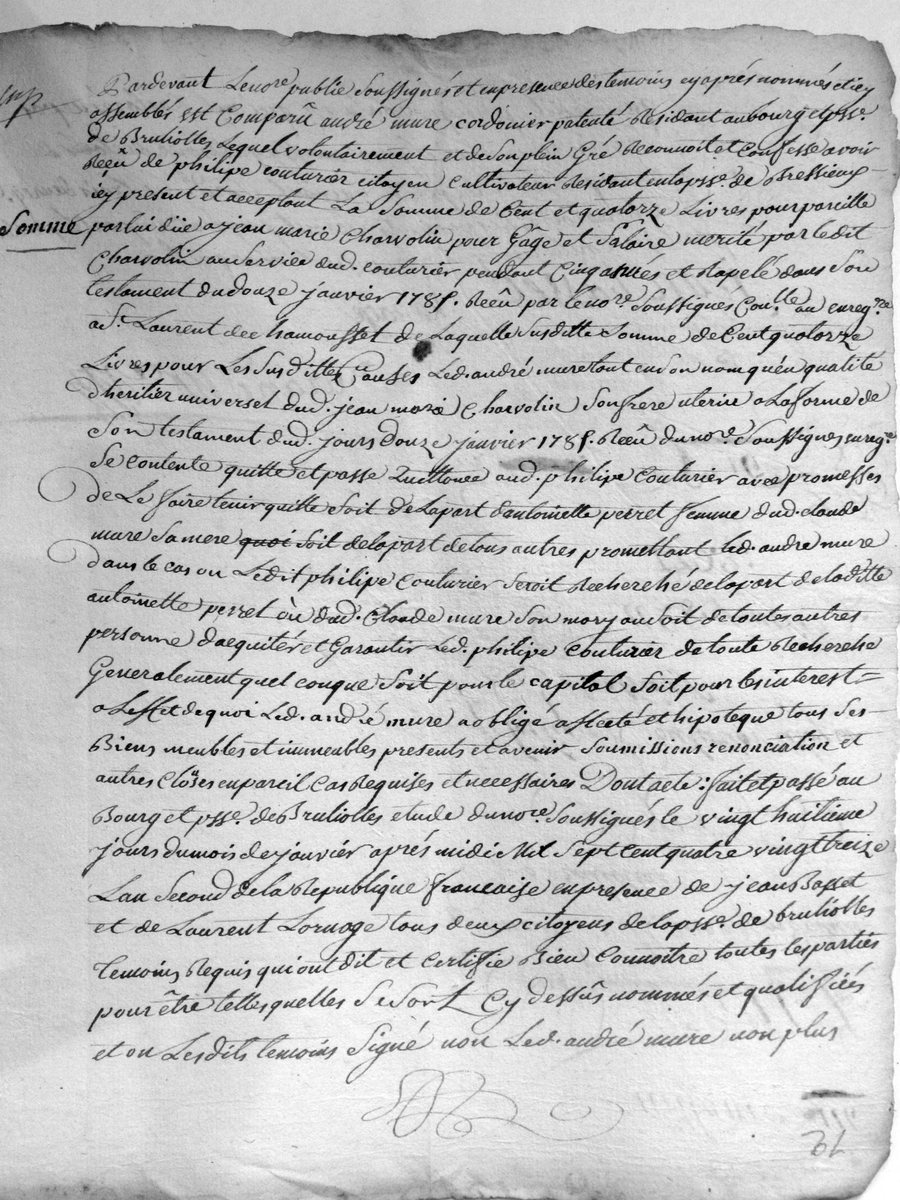 Pardevant Lenore public Soussignés et enpresence des temoins cy aprés nommés et icy
assemblés est Comparû andré mure cordonier patenté Residant aubourg et psse.
de Bruliolles Lequel volontairement et desonplein Gré Reconnoit et Confesse avoir
Reçû de philipe couturier citoyen Cultivateur Residant enlapsse. de Bressieux
icy present et acceptant La Somme de Cent et quatorze Livres pour pareille
Somme parlui düe a jean marie Charvolin pour Gâge et Salaire merité par ledit
Charvolin auservice dud. couturier pendant Cinq années et Rapelé dans Son
testament du douze janvier 1785. Reçû par lenore. Soussignes Conllé au enregre
a St. Laurent de chamousset de Laquelle Susditte Somme de Cent quatorze
Livres pour Les Susdittes Causes Led. andré mure tant en son nom quén qualité
dheritier universel dud. jean marie Charvolin Son frere uterin a Laforme de
Son testament dud. jours douze janvier 1785. Reçû dunore. Soussignes enregre
Se contente quitte et passe Quittance aud. philipe Couturier avec promesses
de Le faire tenir quitte Soit de lapart dantoinette perret femme dud. claude
mure Samere quoi Soit de lapart de tous autres promettant led. andre mure
dans le cas ou Ledit philipe Couturier Seroit Recherché de lapart de laditte
antoinette perret où dud. Claude mure Son mary ou Soit de toutes autres
personne dacquitér et Garantir Led. philipe Couturier de toute Recherche
Generalement quel conque Soit pour le capital Soit pour les interest =
a Leffet de quoi Led. andré mure a obligé affecté et hipoteque tous Ses
Biens meubles et immeubles presents et avenir Soumissions renonciation et
autres Clôses enpareil Cas Requises et necessaires Dont acte : fait et passé au
Bourg et psse. de Brulioles etude dunore. Soussignés le vingt huitieme
jours dumois de janvier aprés midi Mil Sept Cent quatre vingt treize
Lan Second de la Republique francaise enpresence de jean Basset
et de Laurent Lornage tous deux citoyens de lapsse. de brulioles
temoins Requis qui ont dit et Certifie Bien Connoitre toutes les parties
pour être telles quelles Se Sont Cy dessûs nommés et qualifiées
et on Lesdits temoins Signé non Led. andré mure non plus